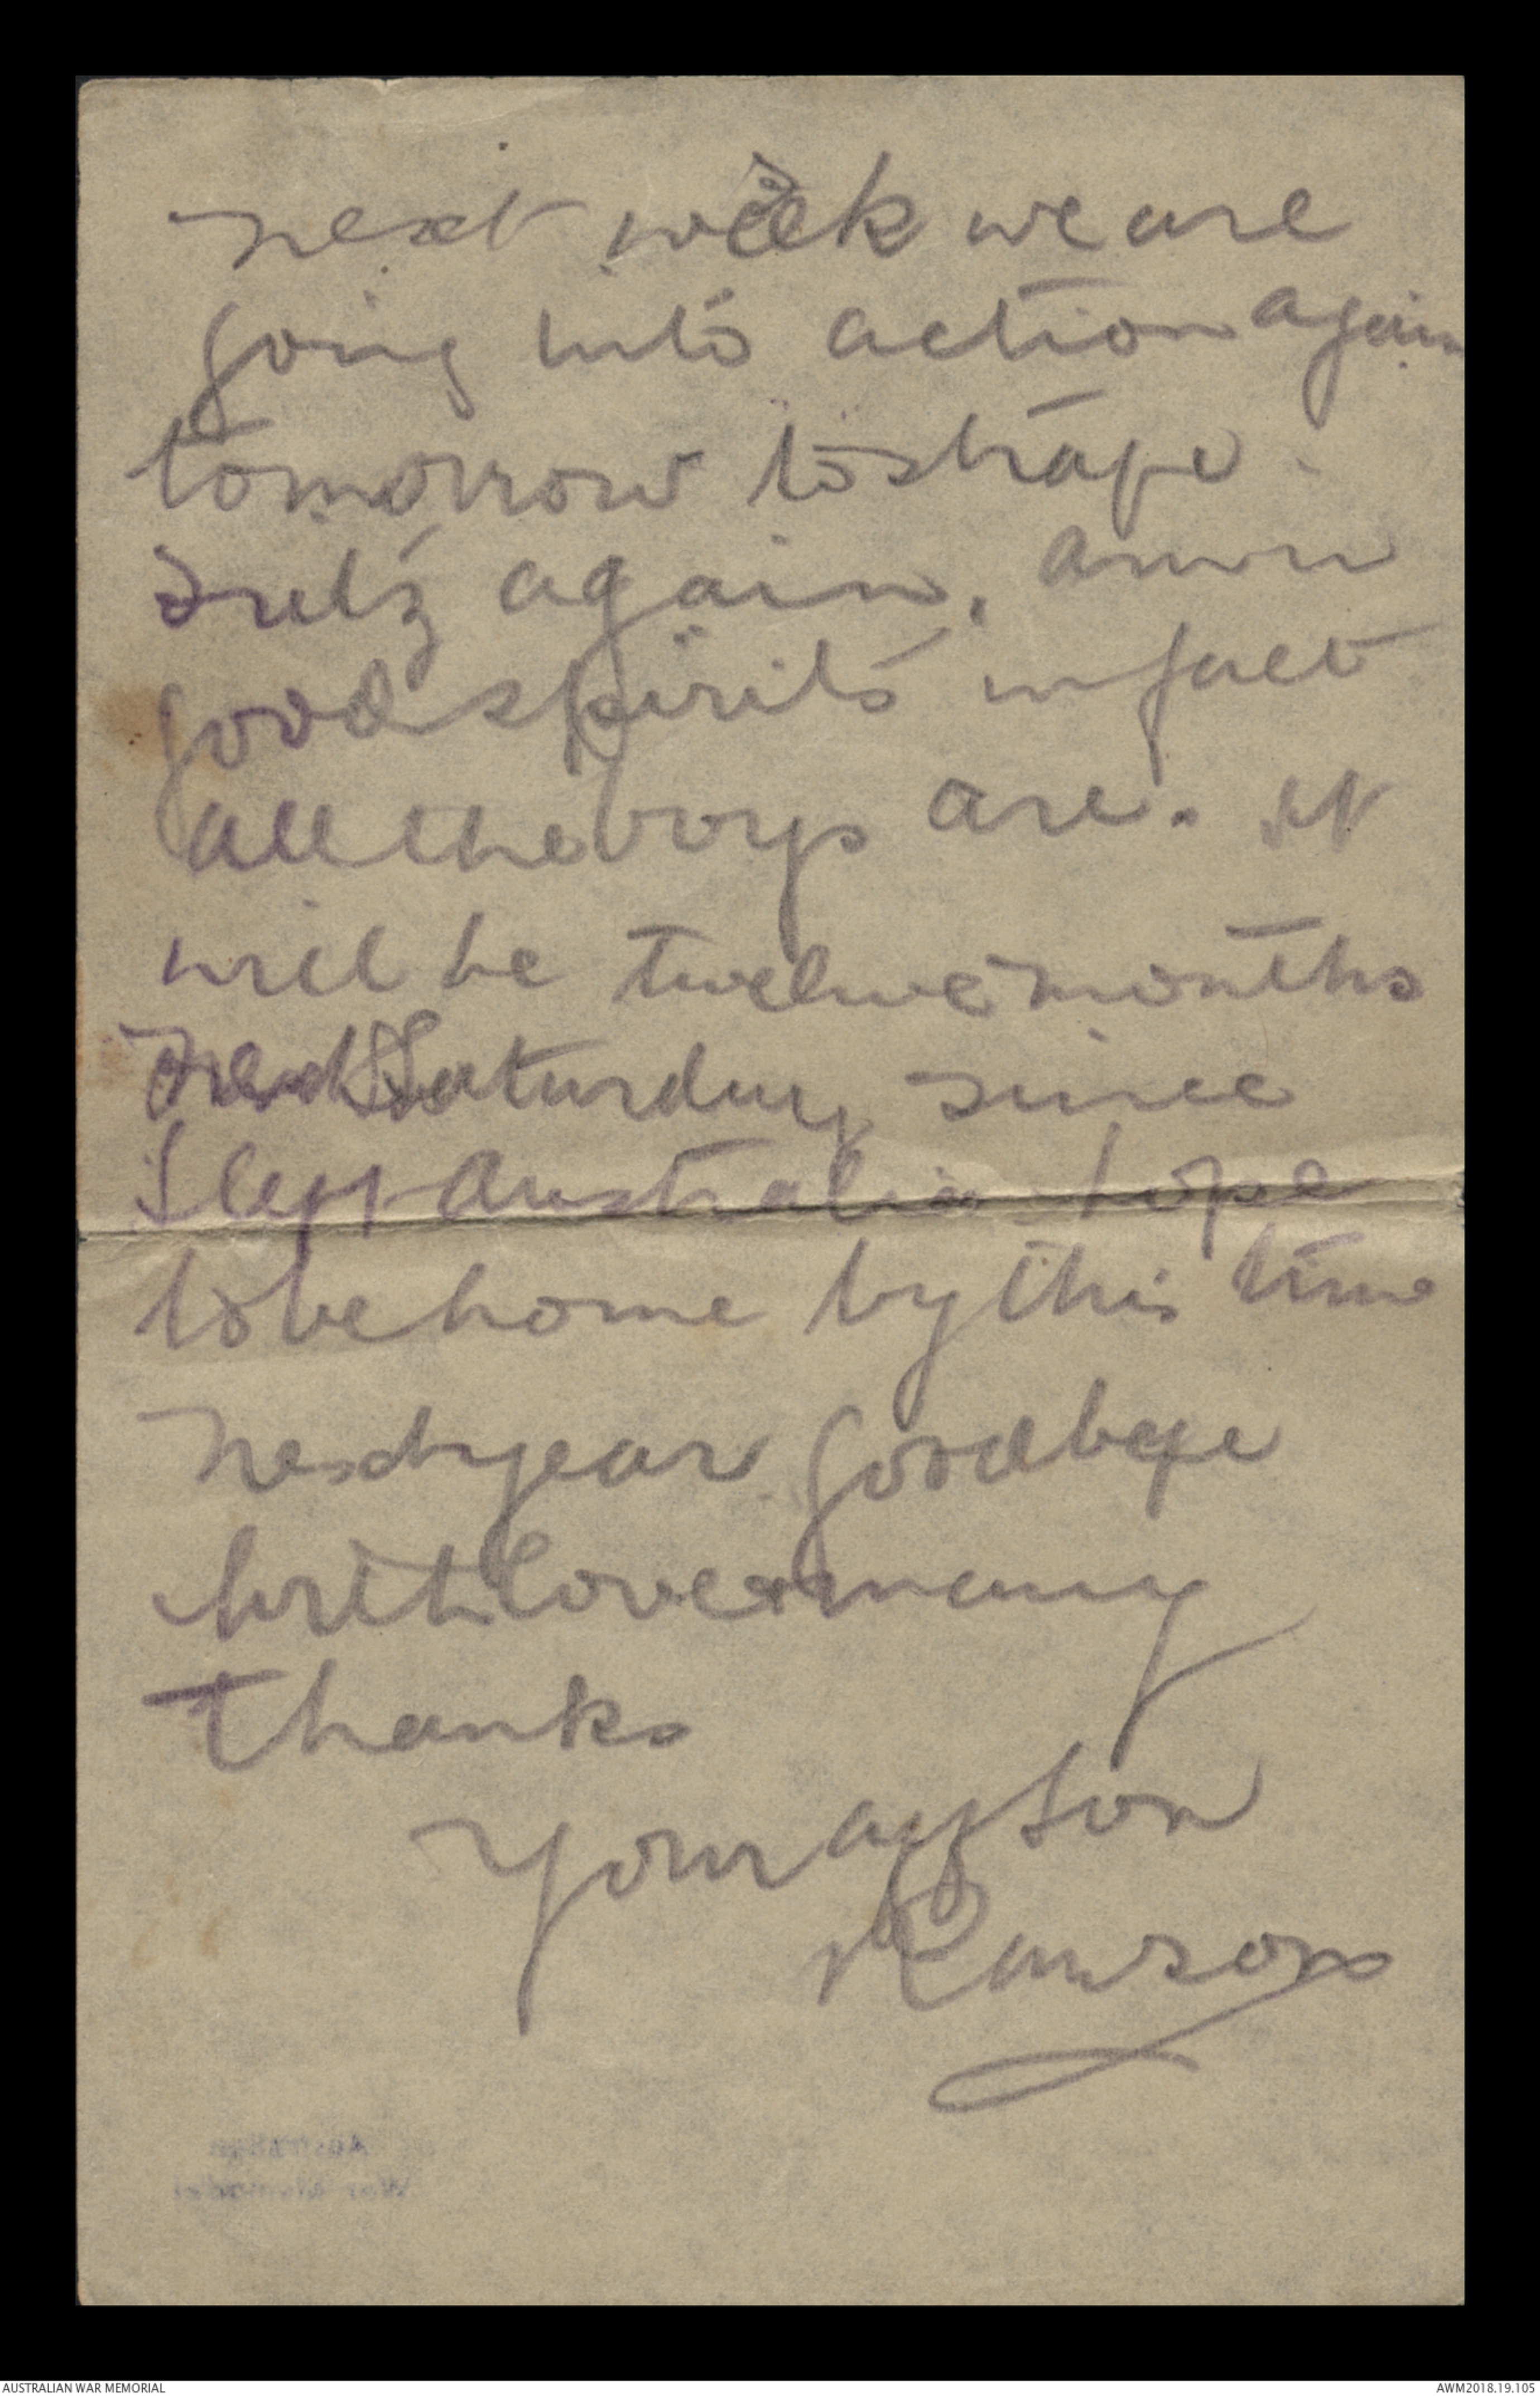 next week we are
going into action again
tomorrow to strafe
Fritz again. am in
good spirits in fact
all the boys are. it
will be twelve months
next Saturday since
I left Australia hope
to be home by this time
next year Goodbye
with love & many
thanks
Your aff son
Rawson
Australian
War Memorial
AUSTRALIAN WAR MEMORIAL
AWM2018.19.105